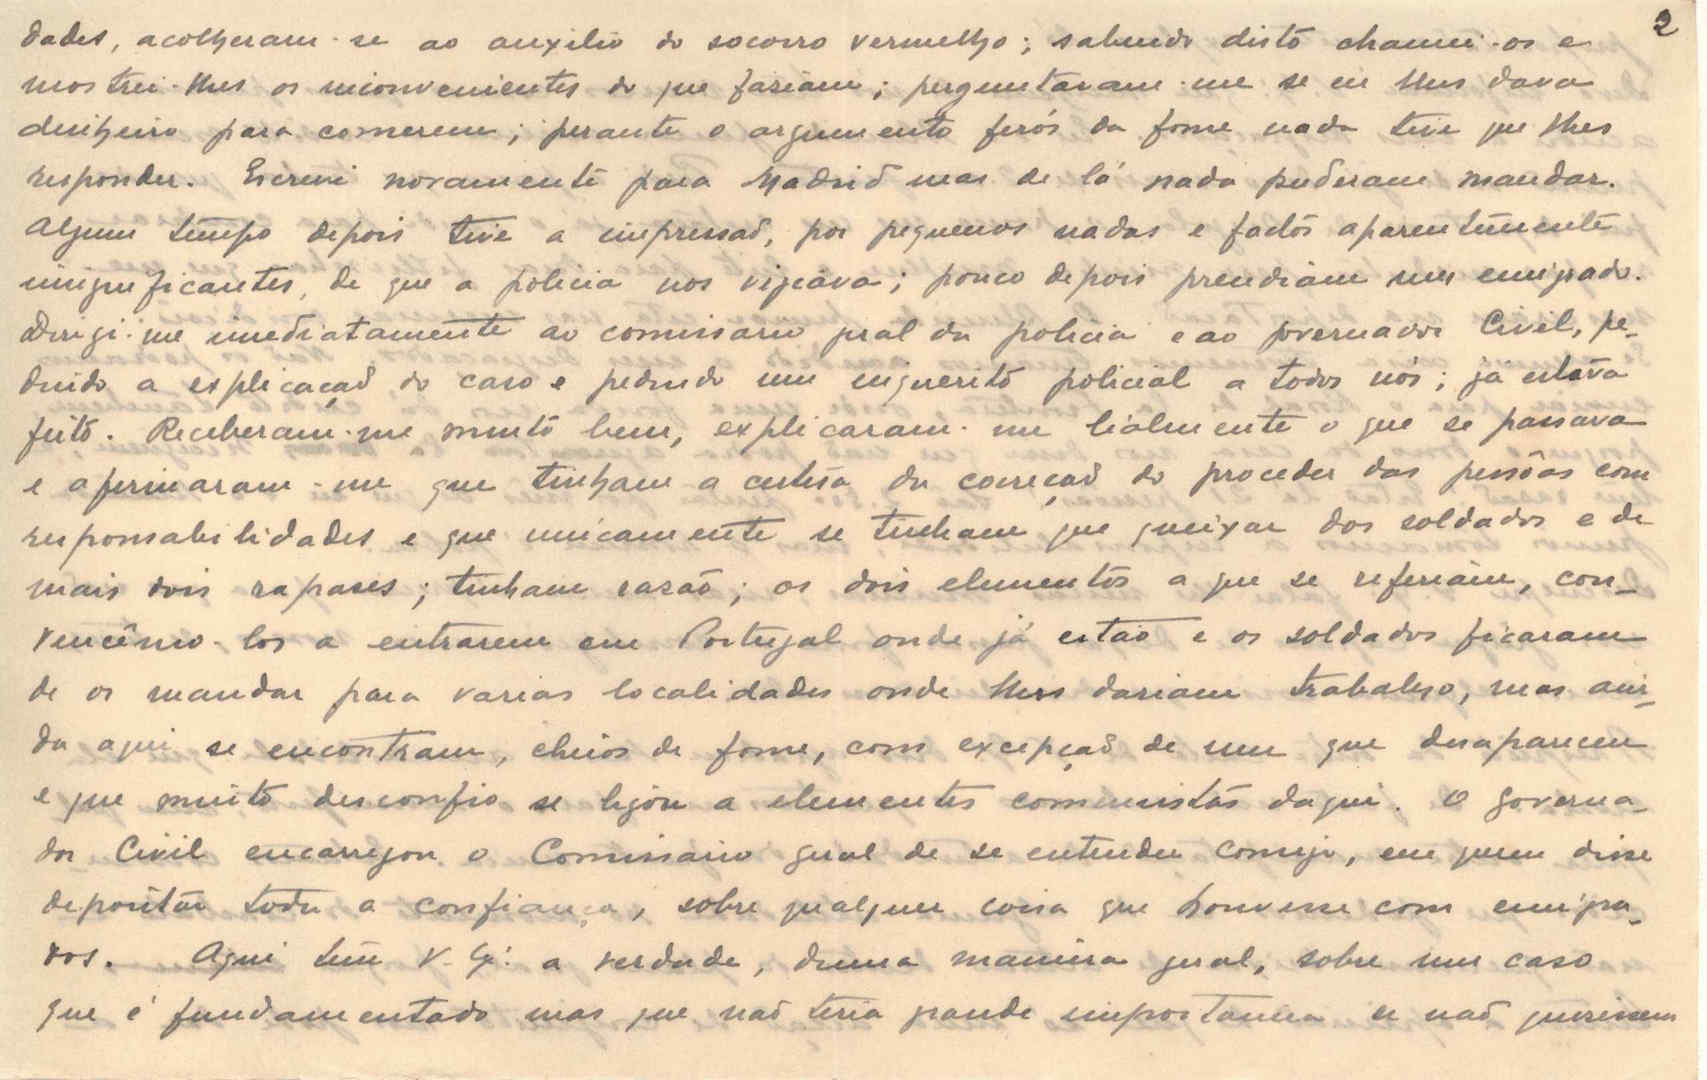 2
dades, acolheram-se ao auxilio do socorro vermelho; sabendo disto chamei-os e
mostrei-lhes os inconvenientes do que faziam; perguntaram-me se eu lhes dava
dinheiro para comerem; perante o argumento ferós da fome nada tive que lhes
responder. Escrevi novamente para Madrid mas de lá nada puderam mandar.
Algum tempo depois tive a impressaõ, por pequenos nadas e factos aparentemente
insignificantes, de que a policia nos vigiava; pouco depois prendiam um emigrado.
Dirigi-me imediatamente ao comissario geral da policia e ao governador Civil, pe-
dindo a explicaçaõ do caso e pedindo um inquerito policial a todos nós; já estava
feito. Receberam-me muito bem, explicaram-me lialmente o que se passava
e afirmaram-me que tinham a certesa da correçaõ do proceder das pessôas com
responsabilidades e que unicamente se tinham que queixar dos soldados e de
mais dois rapases; tinham rasaõ; os dois elementos a que se referiam, con-
vencêmo-los a entrarem em Portugal onde já estaõ e os soldados ficaram
de os mandar para varias localidades onde lhes dariam trabalho, mas ain-
da aqui se encontram, cheios de fome, com excepçaõ de um que desapareceu
e que muito desconfio se ligou a elementos comunistas daqui. O Governa-
dor Civil encarregou o Comissario geral de se entender comigo, em quem disse
depositar toda a confiança, sobre qualquer coisa que houvesse com emigra-
dos. Aqui tem V. Ex.ª a verdade, duma maneira geral, sobre um caso
que é fundamentado mas que naõ teria grande importancia se naõ quisessem